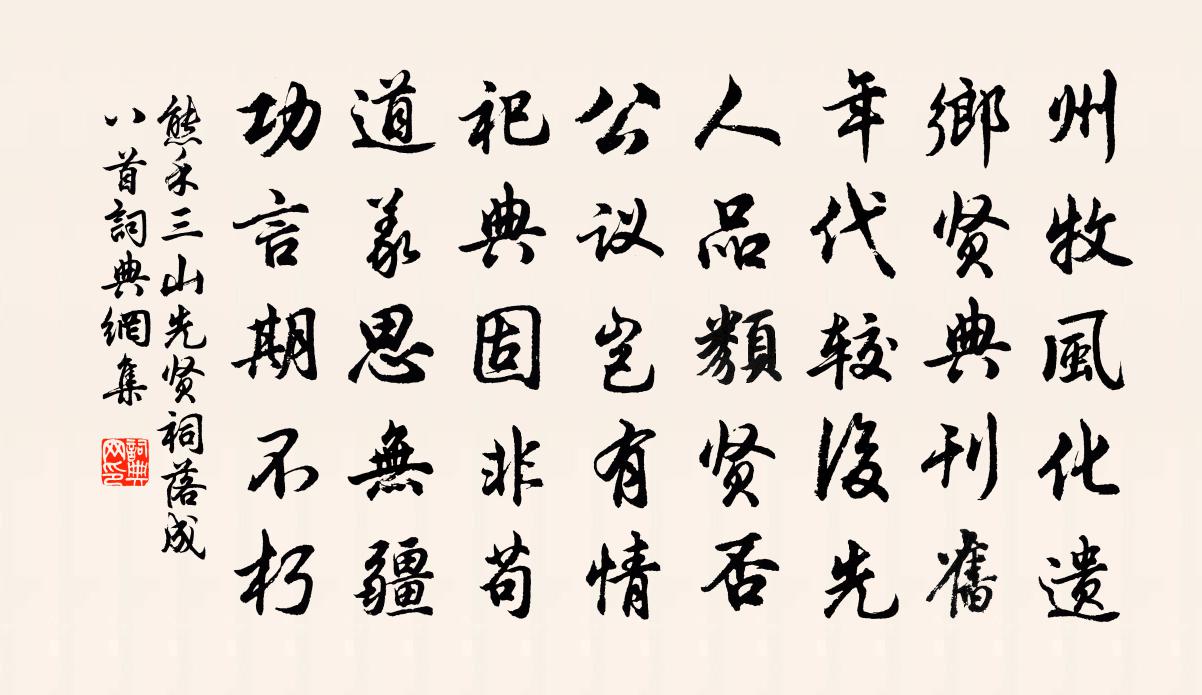 州牧風化遗
鄉贤典刊舊
年代较後先
人品類贤否
公议岂有情
祀典固非苟
道義思無疆
功言期不朽
熊禾三山先贤祠落成
八首詞典網集
詞典網印